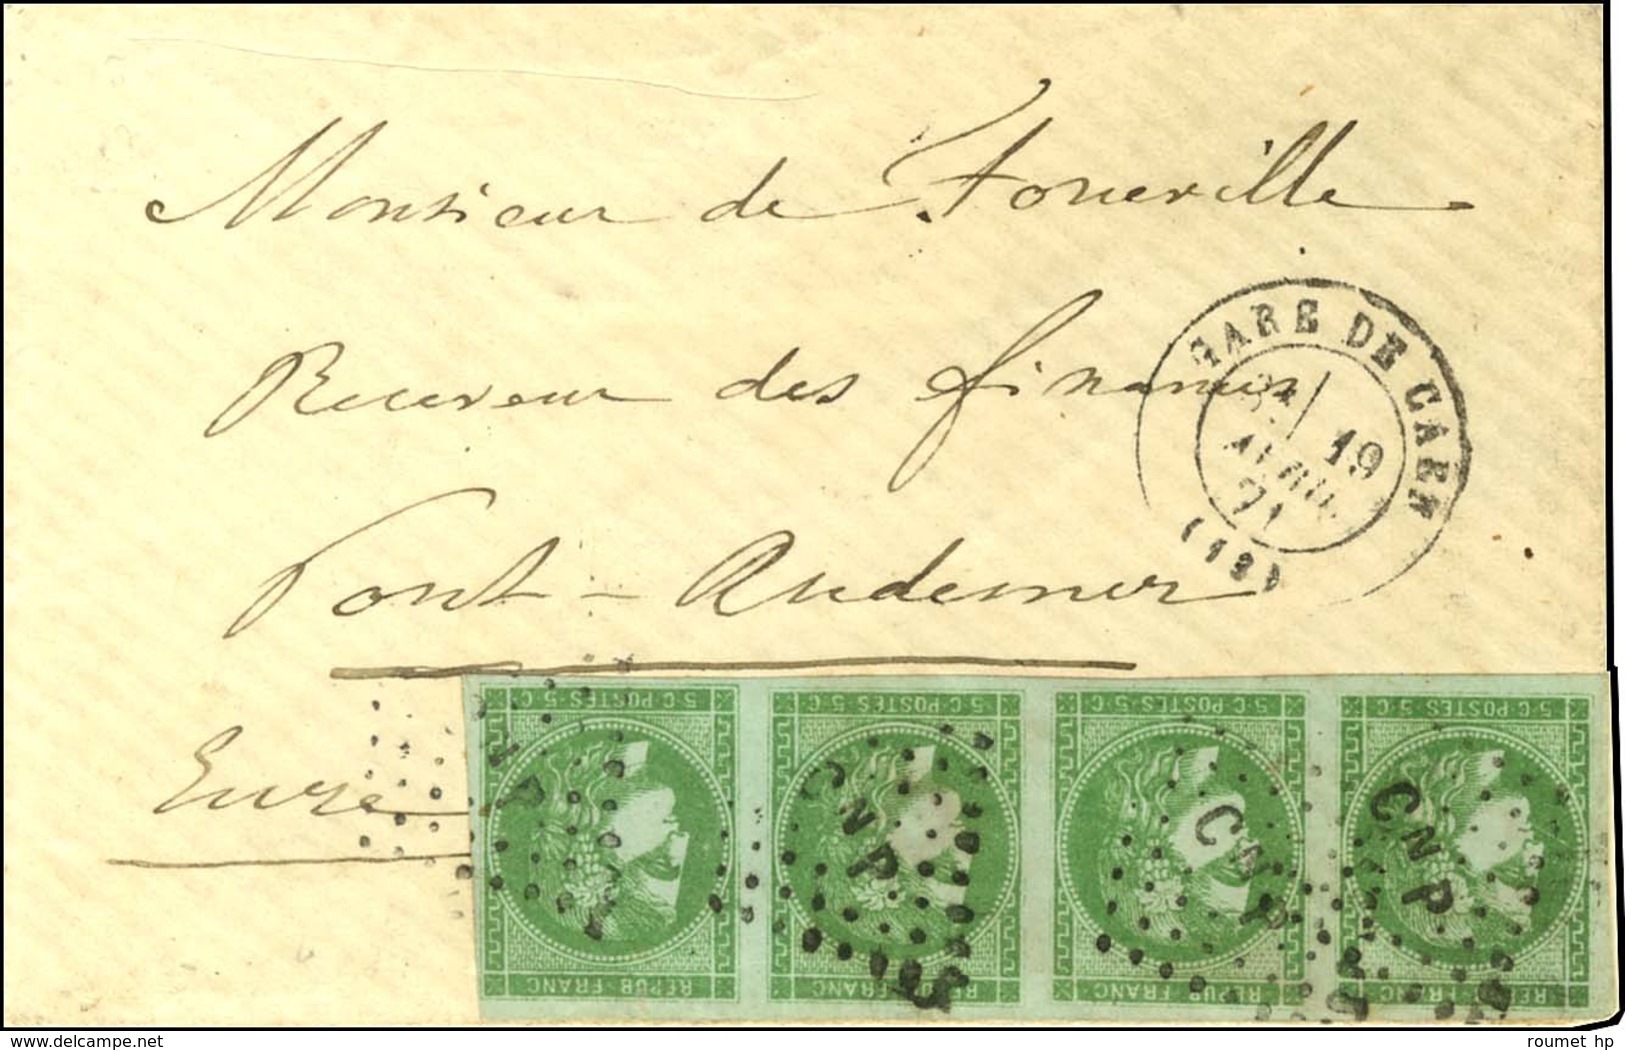 Monsieur de Foucrille
Receveur des finances
Pont-Audemer
Eure
GARE DE CAEN
19
AVRIL
71
5·C·POSTES·5·C
5·C·POSTES·5·C
5·C·POSTES·5·C
5·C·POSTES·5·C
CNP
CNP
CNP
REPUB·FRANC
REPUB·FRANC
REPUB·FRANC
REPUB·FRANC
www.delcampe.net
roumet hp